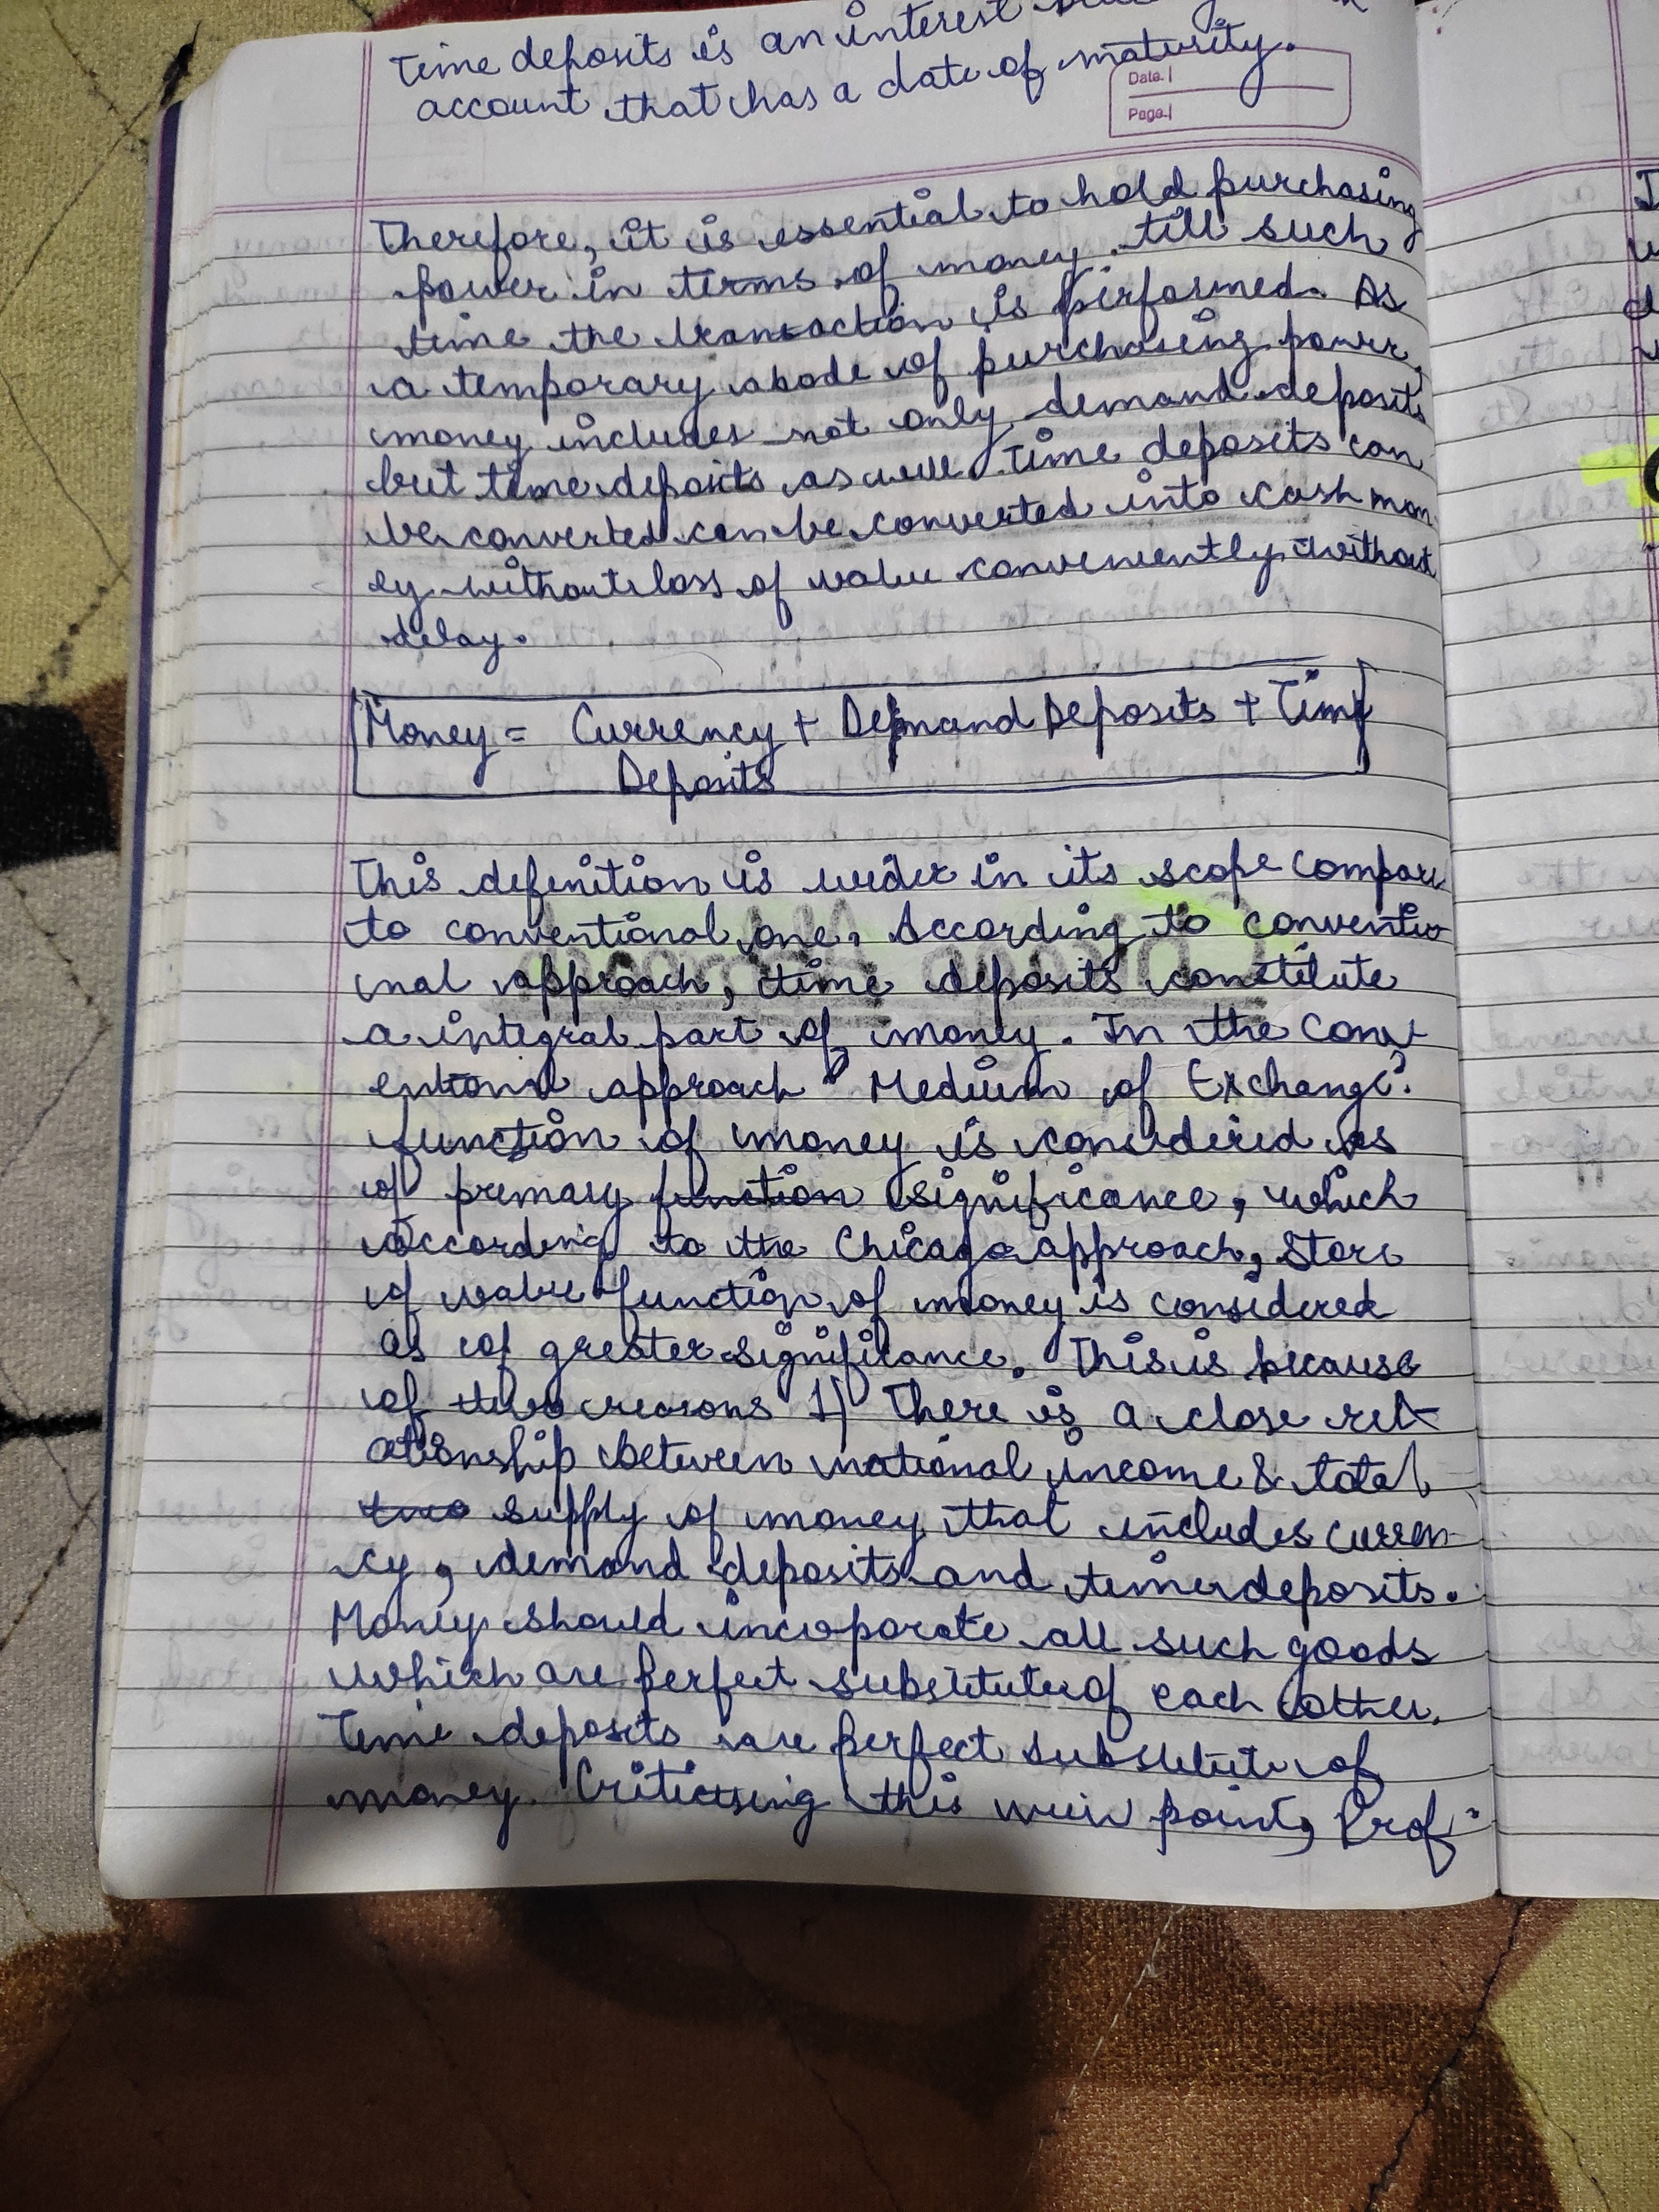 Time deposits is an interest
account that has a date of maturity.
Date.
Page.
Therefore, it is essential to hold purchasing
power in terms of money till such
time the transaction is performed. As
a temporary abode of purchasing power,
money includes not only demand deposits
but time deposits as well. Time deposits can
be converted can be converted into cash mon
ey without loss of value conveniently without
delay.
Money = Currency + Demand Deposits + Time
Deposits
This definition is wider in its scope compare
to conventional one. According to conventio
nal approach, time deposits constitute
a integral part of money. In the conv
entional approach "Medium of Exchange"
function of money is considered as
of primary function significance, which
according to the Chicago approach, store
of value function of money is considered
as of greater significance. This is because
of two reasons 1) There is a close rel-
ationship between national income & total
two supply of money that includes curren-
cy, demand deposits and time deposits.
Money should incorporate all such goods
which are perfect substitute of each other.
Time deposits are perfect substitute of
money. Criticising this view point, Prof.